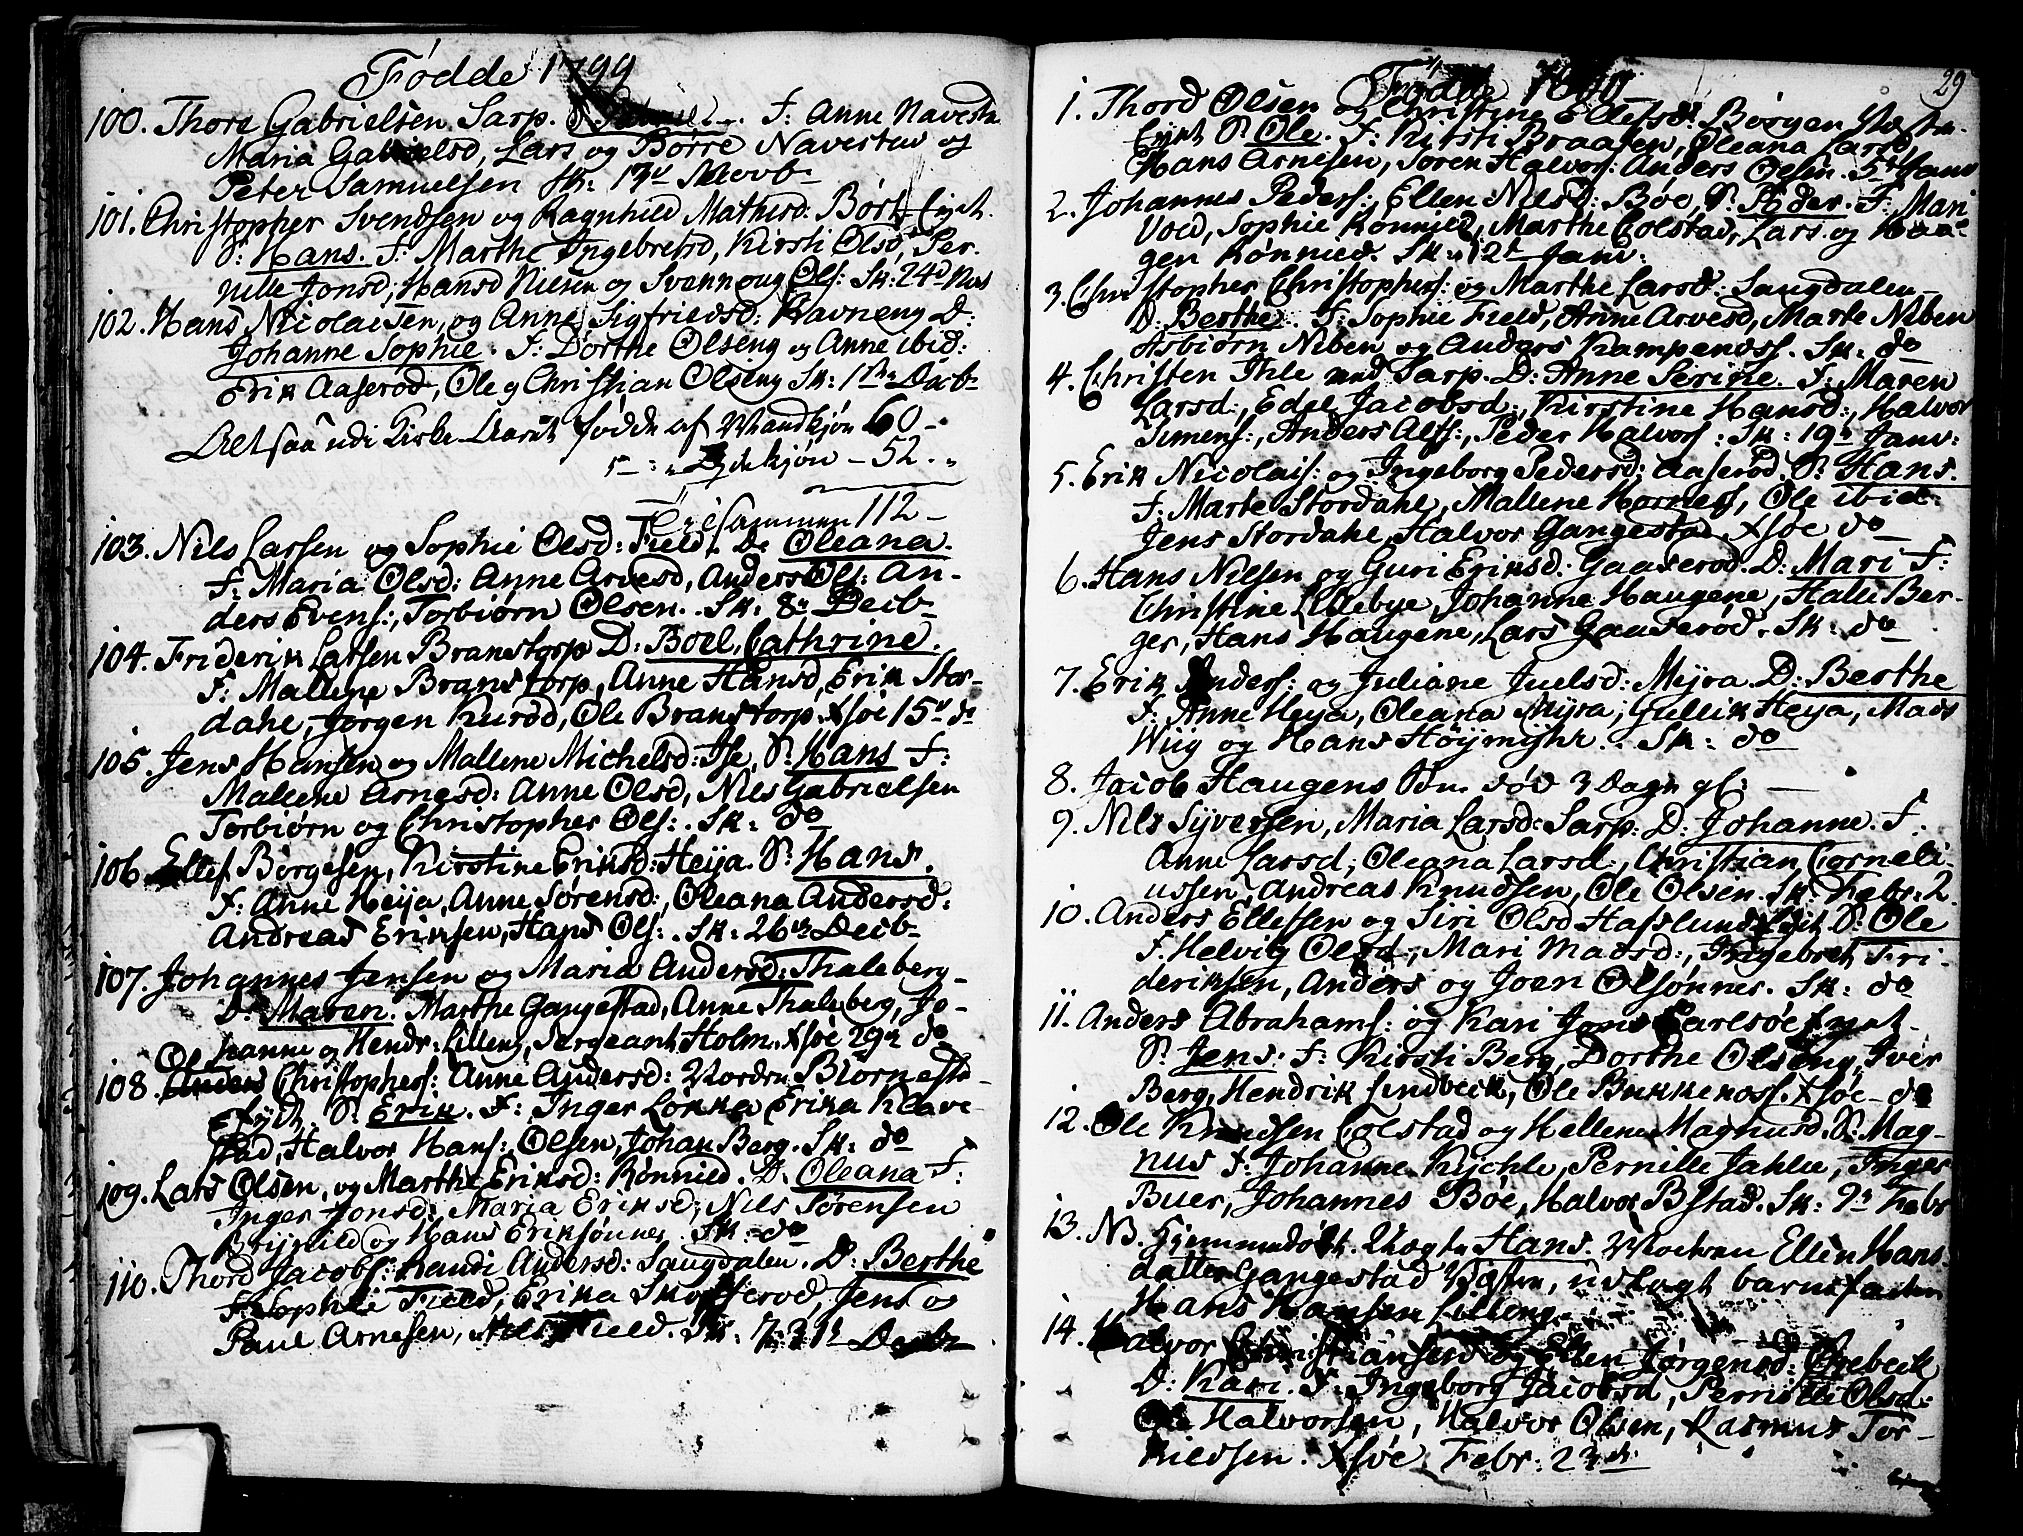 Fødde 1799
100. Thore Gabrielsen Sarp. F: Anne Navestad
Maria Gabrielsd, Lars og Børre Navestad og
Peter Samuelsen Sk: 17d Novb
101. Christopher Svendsen og Ragnhild Mathisd: Børt-Eyet.
S: Hans. F: Marthe Ingebretsd, Kirsti Olsd, Per-
nille Jonsd, Hans Nilsen og Svennoug Ols: Sk: 24d
102. Hans Nicolaisen, og Anne Sigfriedsd: Ravneng D:
Johanne Sophie. F: Dorthe Olseng og Anne ibid:
Erik Aaserød, Ole og Christian Olseng Sk: 1 Decb
Altsaa udi Kirke-Aaret fødde af Mandkjøn 60-
Qvdekjøn - 52.
Tilsammen 112-
103. Nils Larsen og Sophie Olsd: Field. D: Oleana.
F: Maria Olsd: Anne Arvesd, Anders Ols: An-
ders Evens:, Torbiørn Olsen. Sk: 8 Decb
104. Friderik Larsen Branstorp D: Boel Cathrine.
F: Mallene Branstorp, Anne Hansd, Erik Stor-
dahl, Jørgen Kurød, Ole Branstorp. Xsøe 15 do
105. Jens Hansen og Mallene Michelsd: Ise, S: Hans F:
Mallene Arnesd: Anne Olsd, Nils Gabrielsen
Torbiørn og Christopher Ols:. Sk: do
106. Ellef Børgesen, Kirstine Eriksd: Heija. S: Hans.
F: Anne Heija, Anne Sørensd:, Oleana Andersd:
Andreas Eriksen, Hans Ols:. Sk: 26 Decb
107. Johannes Jensen og Maria Andersd: Thaleberg-
D: Maren. Marthe Gangestad, Anne Thaleberg, Jo-
hanne og Hendr: Lilleng, Sergeant Holm. Xsøe 29 do
108. Ole Christophers: Anne Andersd: Nordre Biørnestd-
Eyet. S: Erik. F: Inger Løkka Erika Klave-
stad, Halvor Hans:, Olsen, Johan Berg. Sk: do
109. Lars Olsen, og Marthe Eriksd: Rønnild. D: Oleana F:
Inger Jonsd: Maria Eriksd, Nils Sørensen
Brynild og Hans Eriksønner. Sk: do
110. Thord Jacobs: Randi Andersd: Saugdalen. D: Berthe
F: Sophie Field, Erika Skofterød, Jens og
Paul Arnesen, Nils Field. Sk: Decb
29
Fødde 1800
1. Thord Olsen og Christine Ellefsd: Børgen Næstn-
Eyet S: Ole. F: Kirsti Braaten, Oleana Larsd,
Hans Arnesen, Søren Halvors: Anders Olsen. 5 Janv
2. Johannes Peders:, Ellen Nilsd: Bøe, S: Peder. F: Mari
Vold, Sophie Rønnild, Marthe Colstad, Lars og Haa-
gen Rønnied. Sk: 12 Janv:
3. Christopher Christophers: og Marthe Larsd: Saugdalen-
D: Berthe. F: Sophie Field, Anne Arvesd, Marte Niben
Asbiørn Niben og Anders Kampenoss. Sk: do
4. Christen Ihle ved Sarp. D: Anne Serine. F: Maren
Larsd:, Edel Jacobsd:, Kirstine Hansd:, Halvor
Simens:, Anders Alfs:, Peder Halvors: Sk: 19 Janv:
5. Erik Nicolais: og Ingeborg Pedersd: Aaserød S: Hans.
F: Marte Stordahl, Mallene Hornes, Ole ibid:
Jens Stordahl, Halvor Gangestad. Xsøe do
6. Hans Nilsen og Guri Eriksd: Gaaserød. D: Mari F:
Christine Lillebye, Johanne Haugene, Halle Ber-
ger, Hans Haugene, Lars Gaaserød. Sk: do
7. Erik Anders: og Juliane Juelsd: Myra. D: Berthe
F: Anne Heya, Oleana Myra, Gullik Heya, Mads
Wiig og Hans Høijmyhr. Sk: do
8. Jacob Haugens Søn død 3 Dage gl: -
9. Nils Syversen, Maria Larsd: Sarp: D: Johanne. F.
Anne Larsd, Oleana Larsd:, Christian Corneli-
ussen, Andreas Knudsen, Ole Olsen. Sk: Febr: 2.
10. Anders Ellefsen og Siri Olsd Hasslund Eiet S: Ole
F. Helvig Olsd, Mari Madsd:, Ingebret Fri-
deriksen, Anders og Joen Olsønner. Sk: do
11. Anders Abrahams: og Kari Jons Carlsøe Eyet-
S: Jens. F: Kirsti Berg, Dorthe Olseng, Iver
Berg, Hendrik Sendbeck, Ole Bukkenoss. Xsøe- do
12. Ole Knudsen Colstad og Hellene Magnusd. S: Mag-
nus F: Johanne Kychle, Pernille Jahle, Inger
Buer, Johannes Bøe, Halvor Bstad. Sk: 9 Febr
13. NB. Hjemmedøbt Uægte Hans. Moderen Ellen Hans-
datter Gangestad udlagt barnefader
Hans Hansen Lilleng.
14. Halvor Christiansen og Ellen Jørgensd: Opebeck
D: Kari. F: Ingeborg Jacobsd, Pernille Olsd:
Ole Halvorsen, Halvor Olsen, Rasmus Tor-
kildsen. Xsøe Febr: 23